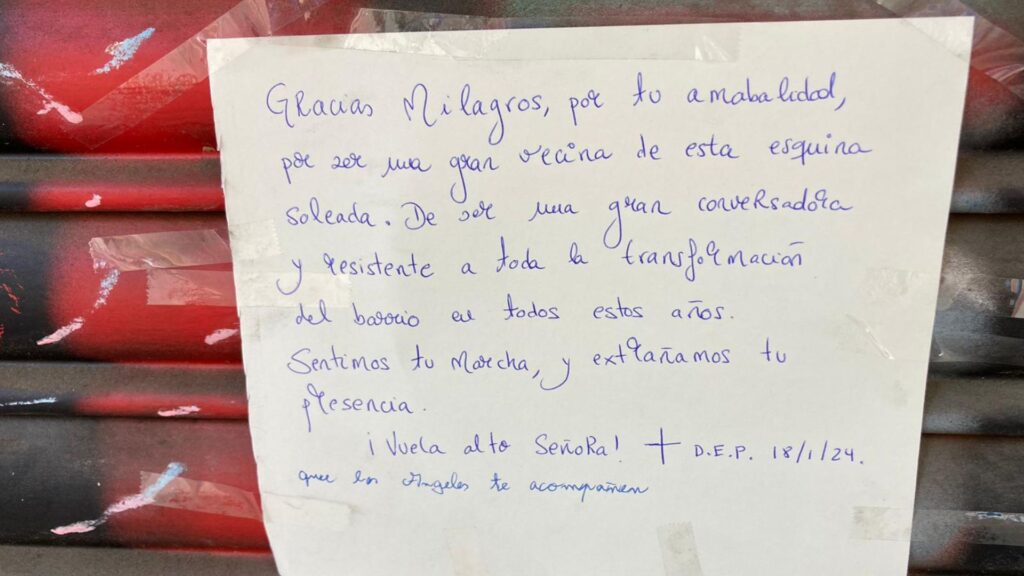 Gracias Milagros, por tu amabalidad,
por ser una gran vecina de esta esquina
soleada. De ser una gran conversadora
y resistente a toda la transformación
del barrio en todos estos años.
Sentimos tu marcha, y extrañamos tu
presencia.
¡Vuela alto Señora! + D.E.P. 18/1/24.
que los Angeles te acompañen